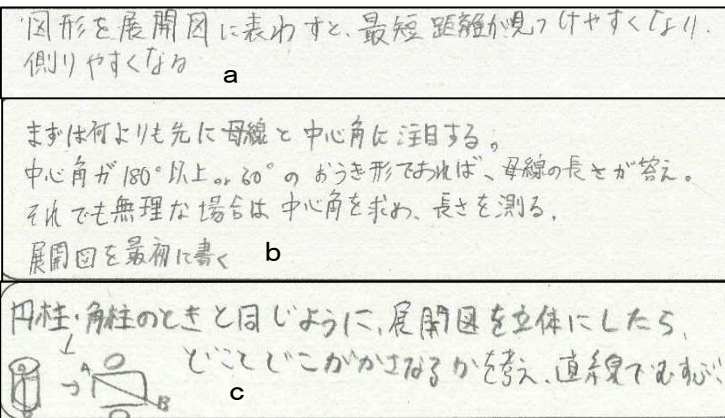 図形を展開図に表わすと、最短距離が見つけやすくなり、
側りやすくなる
a
まずは何よりも先に母線と中心角に注目する。
中心角が180°以上or60°のおうぎ形であれば、母線の長さが答え。
それでも無理な場合は中心角を求め、長さを測る。
展開図を最初に書く
b
円柱・角柱のときと同じように、展開図を立体にしたら、
どことどこがかさなるかを考え、直線でむすぶ!
A
B
c